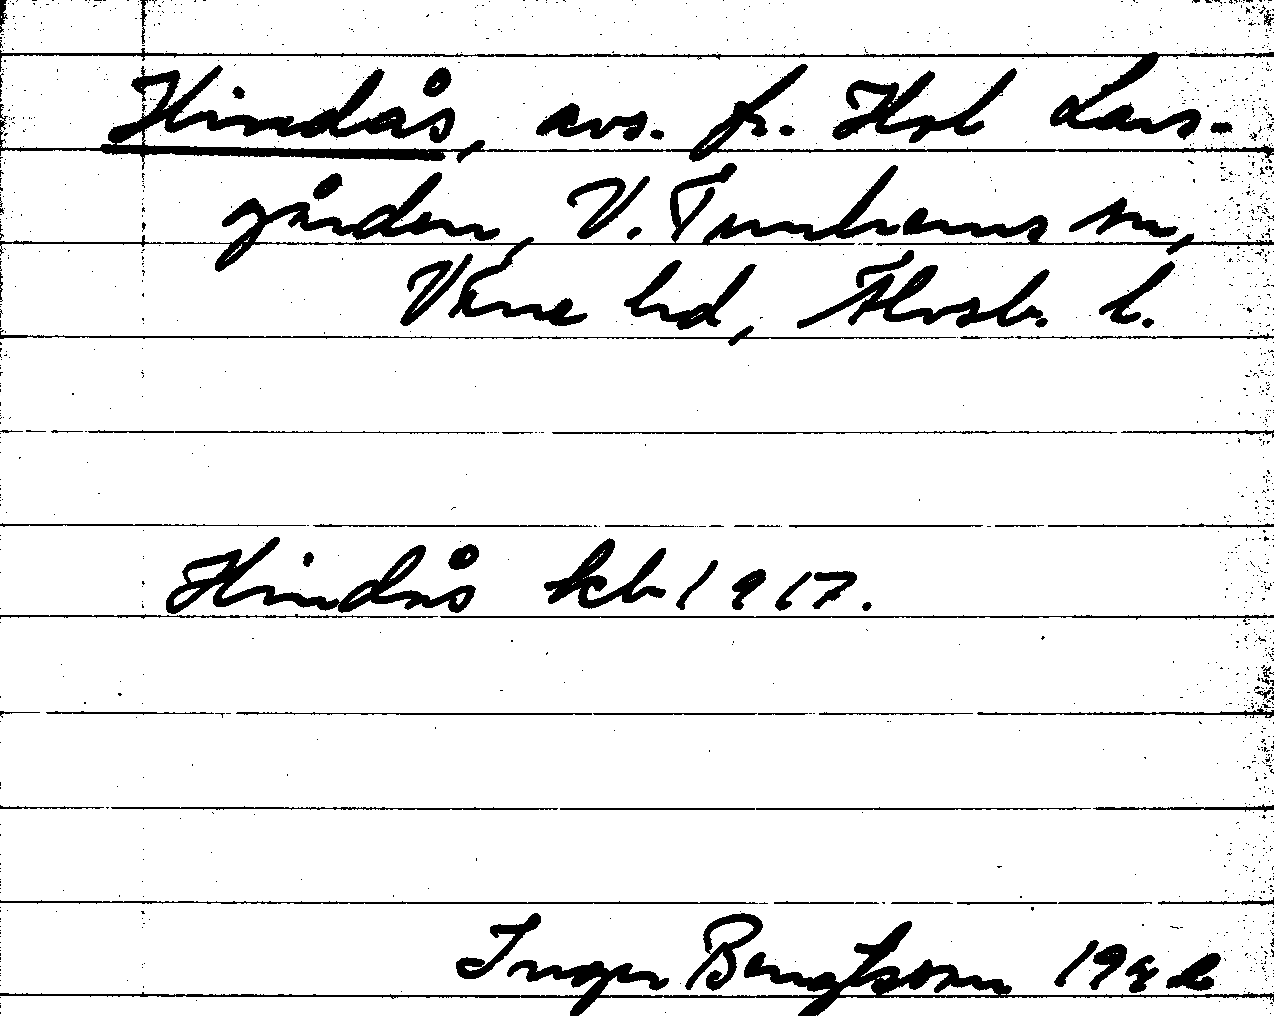 Hindås, avs. fr. Hol Lars-
gården, V. Tunhems sn,
Väne hd, Älvsb. l.
Hindås kb 1917.
Inger Bengtsson 1982